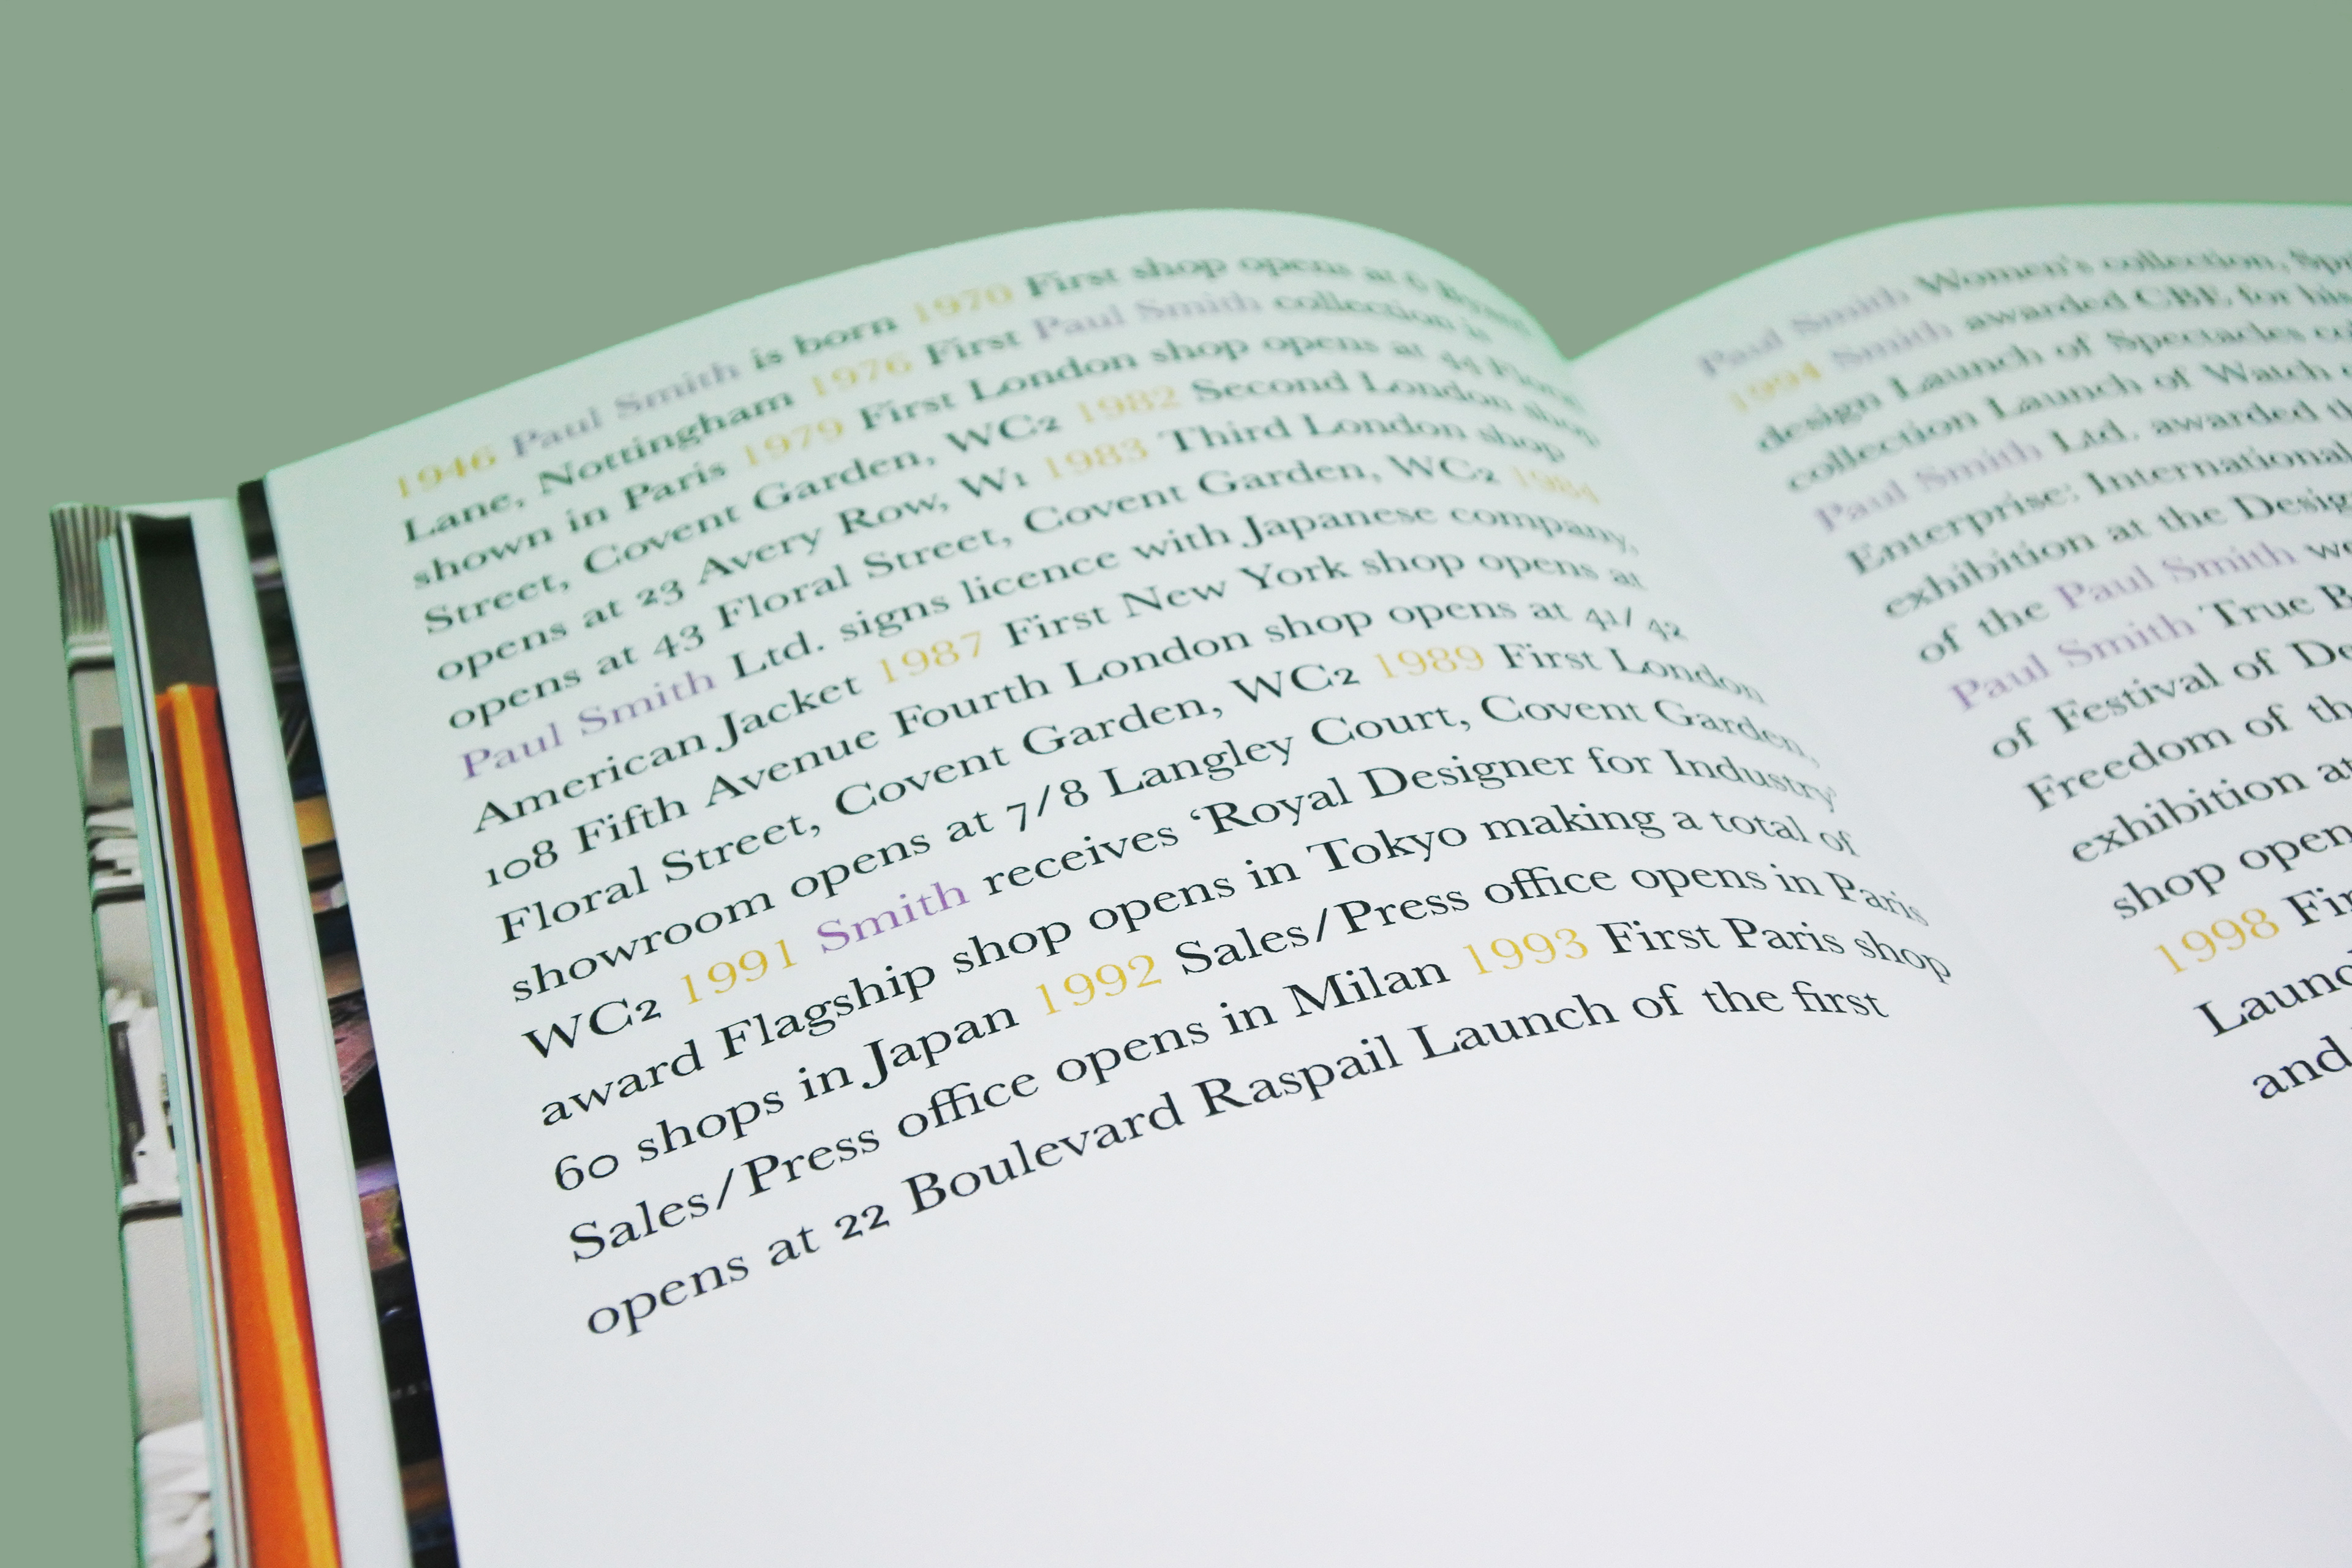 1946 Paul Smith is born 1970 First shop opens at 6 Byard
Lane, Nottingham 1976 First Paul Smith collection is
shown in Paris 1979 First London shop opens at 44 Floral
Street, Covent Garden, WC2 1982 Second London shop
opens at 23 Avery Row, W1 1983 Third London shop
opens at 43 Floral Street, Covent Garden, WC2 1984
Paul Smith Ltd. signs licence with Japanese company,
American Jacket 1987 First New York shop opens at
108 Fifth Avenue Fourth London shop opens at 41/42
Floral Street, Covent Garden, WC2 1989 First London
showroom opens at 7/8 Langley Court, Covent Garden,
WC2 1991 Smith receives ‘Royal Designer for Industry’
award Flagship shop opens in Tokyo making a total of
60 shops in Japan 1992 Sales/Press office opens in Paris
Sales/Press office opens in Milan 1993 First Paris shop
opens at 22 Boulevard Raspail Launch of the first
Paul Smith Women's collection,
1994 Smith awarded CBE for his
design Launch of Spectacles
collection Launch of Watch
Paul Smith Ltd. awarded
Enterprise: International
exhibition at the
of the Paul Smith
Paul Smith True
of Festival of
Freedom of
exhibition
shop
1998
and